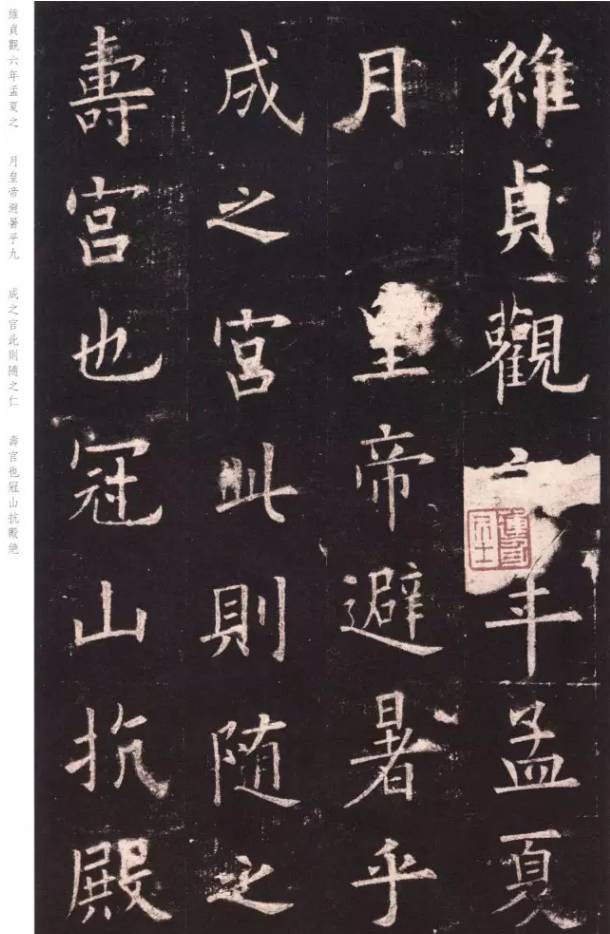 維貞觀六年孟夏
月皇帝避暑乎
成之宮此則随之
壽宮也冠山抗殿
維貞觀六年孟夏之
月皇帝避暑乎九
成之官此則随之仁
壽官也冠山抗殿絶